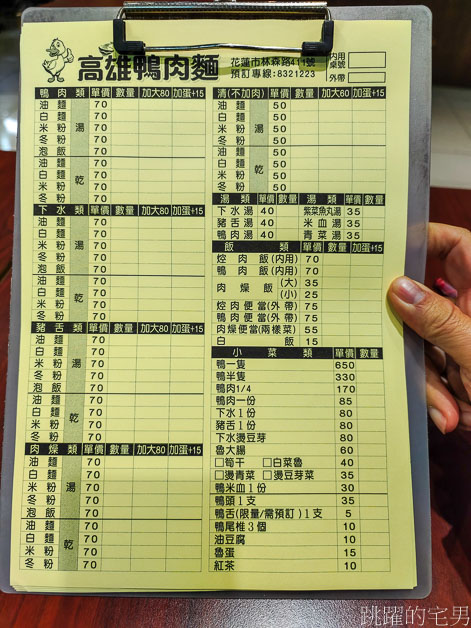 高雄鴨肉麵
花蓮市林森路411號
預訂專線:8321223
內用
桌號
外帶
鴨肉類 單價 數量 加大80 加蛋+15
油麵 70
白麵 70
米粉 湯 70
冬粉 70
泡飯 70
油麵 70
白麵 70
米粉 乾 70
冬粉 70
下水類 單價 數量 加大80 加蛋+15
油麵 70
白麵 70
米粉 湯 70
冬粉 70
泡飯 70
油麵 70
白麵 70
米粉 乾 70
冬粉 70
豬舌類 單價 數量 加大80 加蛋+15
油麵 70
白麵 70
米粉 湯 70
冬粉 70
泡飯 70
油麵 70
白麵 70
米粉 乾 70
冬粉 70
肉燥類 單價 數量 加大80 加蛋+15
油麵 70
白麵 70
米粉 湯 70
冬粉 70
泡飯 70
油麵 70
白麵 70
米粉 乾 70
冬粉 70
清(不加肉) 單價 數量 加大60 加蛋+15
油麵 50
白麵 50
米粉 湯 50
冬粉 50
油麵 50
白麵 50
米粉 乾 50
冬粉 50
湯類 單價 數量 湯類 單價 數量
下水湯 40 紫菜魚丸湯 35
豬舌湯 40 米血湯 35
鴨肉湯 40 青菜湯 35
飯類 單價 數量 加蛋+15
焢肉飯(內用) 70
鴨肉飯(內用) 70
肉燥飯 (大) 35
(小) 25
焢肉便當(外帶) 75
鴨肉便當(外帶) 75
肉燥便當(兩樣菜) 55
白飯 15
小菜類 單價 數量
鴨一隻 650
鴨半隻 330
鴨肉1/4 170
鴨肉一份 85
下水1份 80
豬舌1份 80
下水燙豆芽 80
魯大腸 60
□筍干 □白菜魯 40
□燙青菜 □燙豆芽菜 35
鴨米血1份 30
鴨頭1支 35
鴨舌(限量/需預訂)1支 5
鴨尾椎3個 10
油豆腐 10
魯蛋 15
紅茶 10
跳躍的宅男